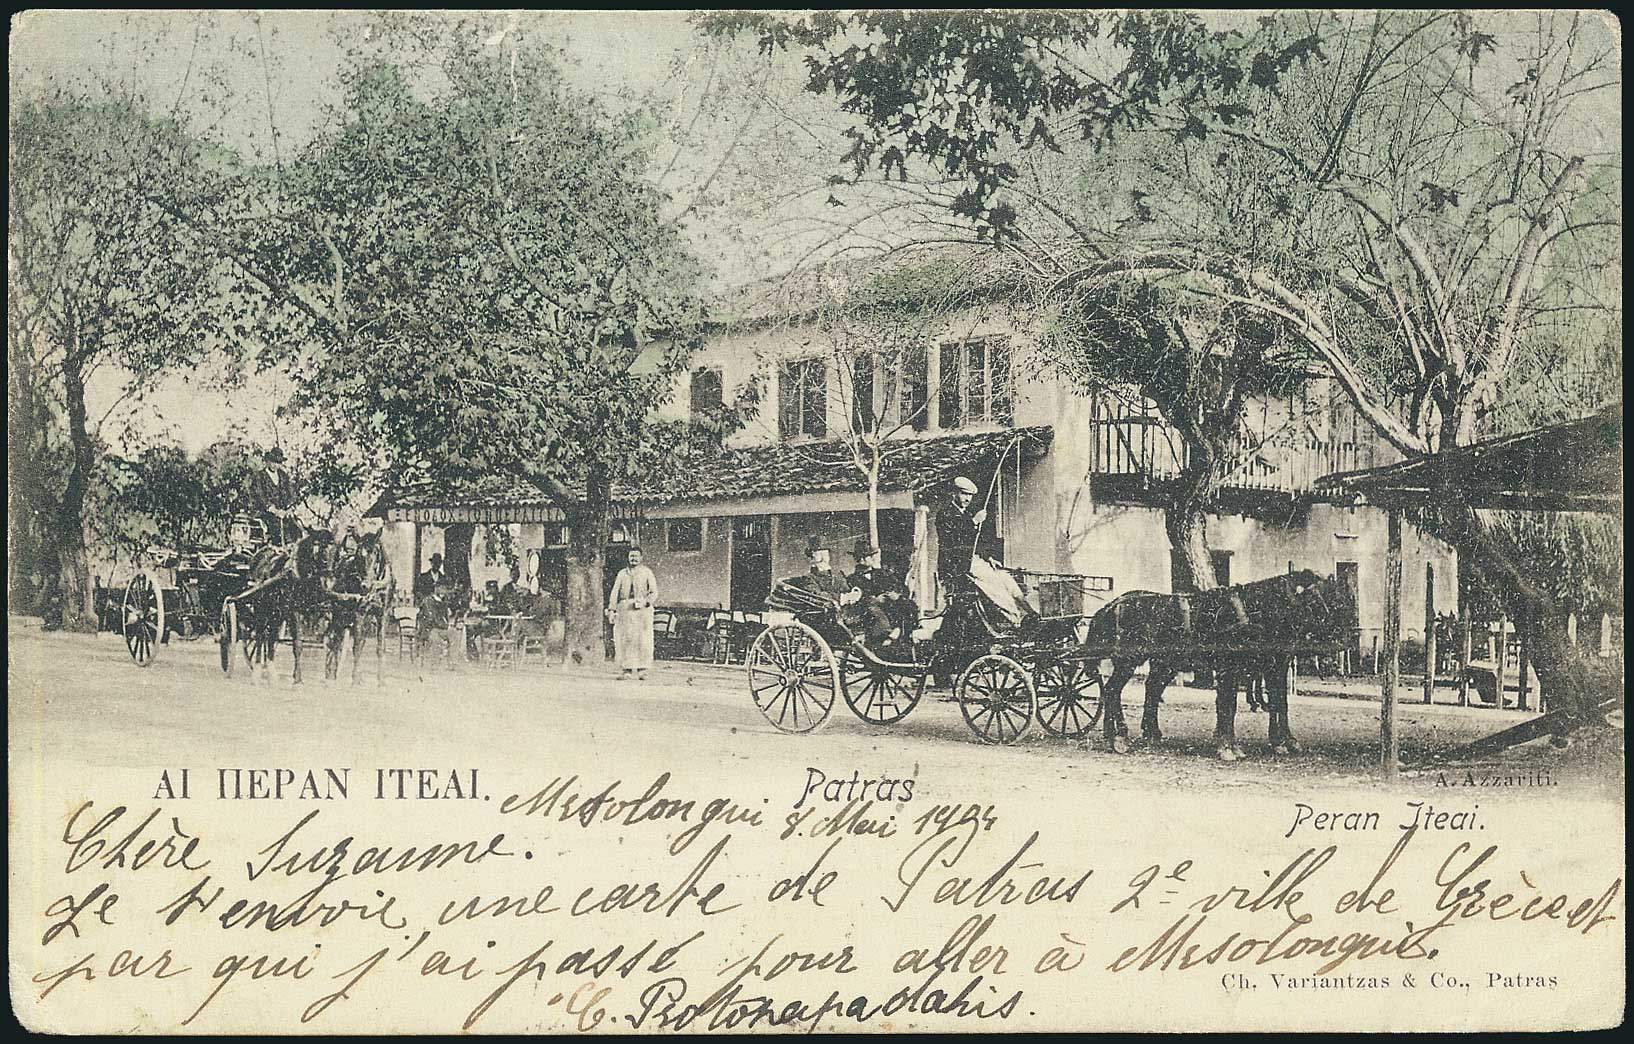 ΑΙ ΠΕΡΑΝ ΙΤΕΑΙ.
Patras
A. Azzariti.
Peran Iteai.
Messolongui 8. Mai
Chère Suzanne.
Je t'envoie une carte de Patras 2e ville de Grèce et
par qui j'ai passé pour aller à Messolongui.
Ch. Variantzas & Co., Patras
C. Protopapadakis.